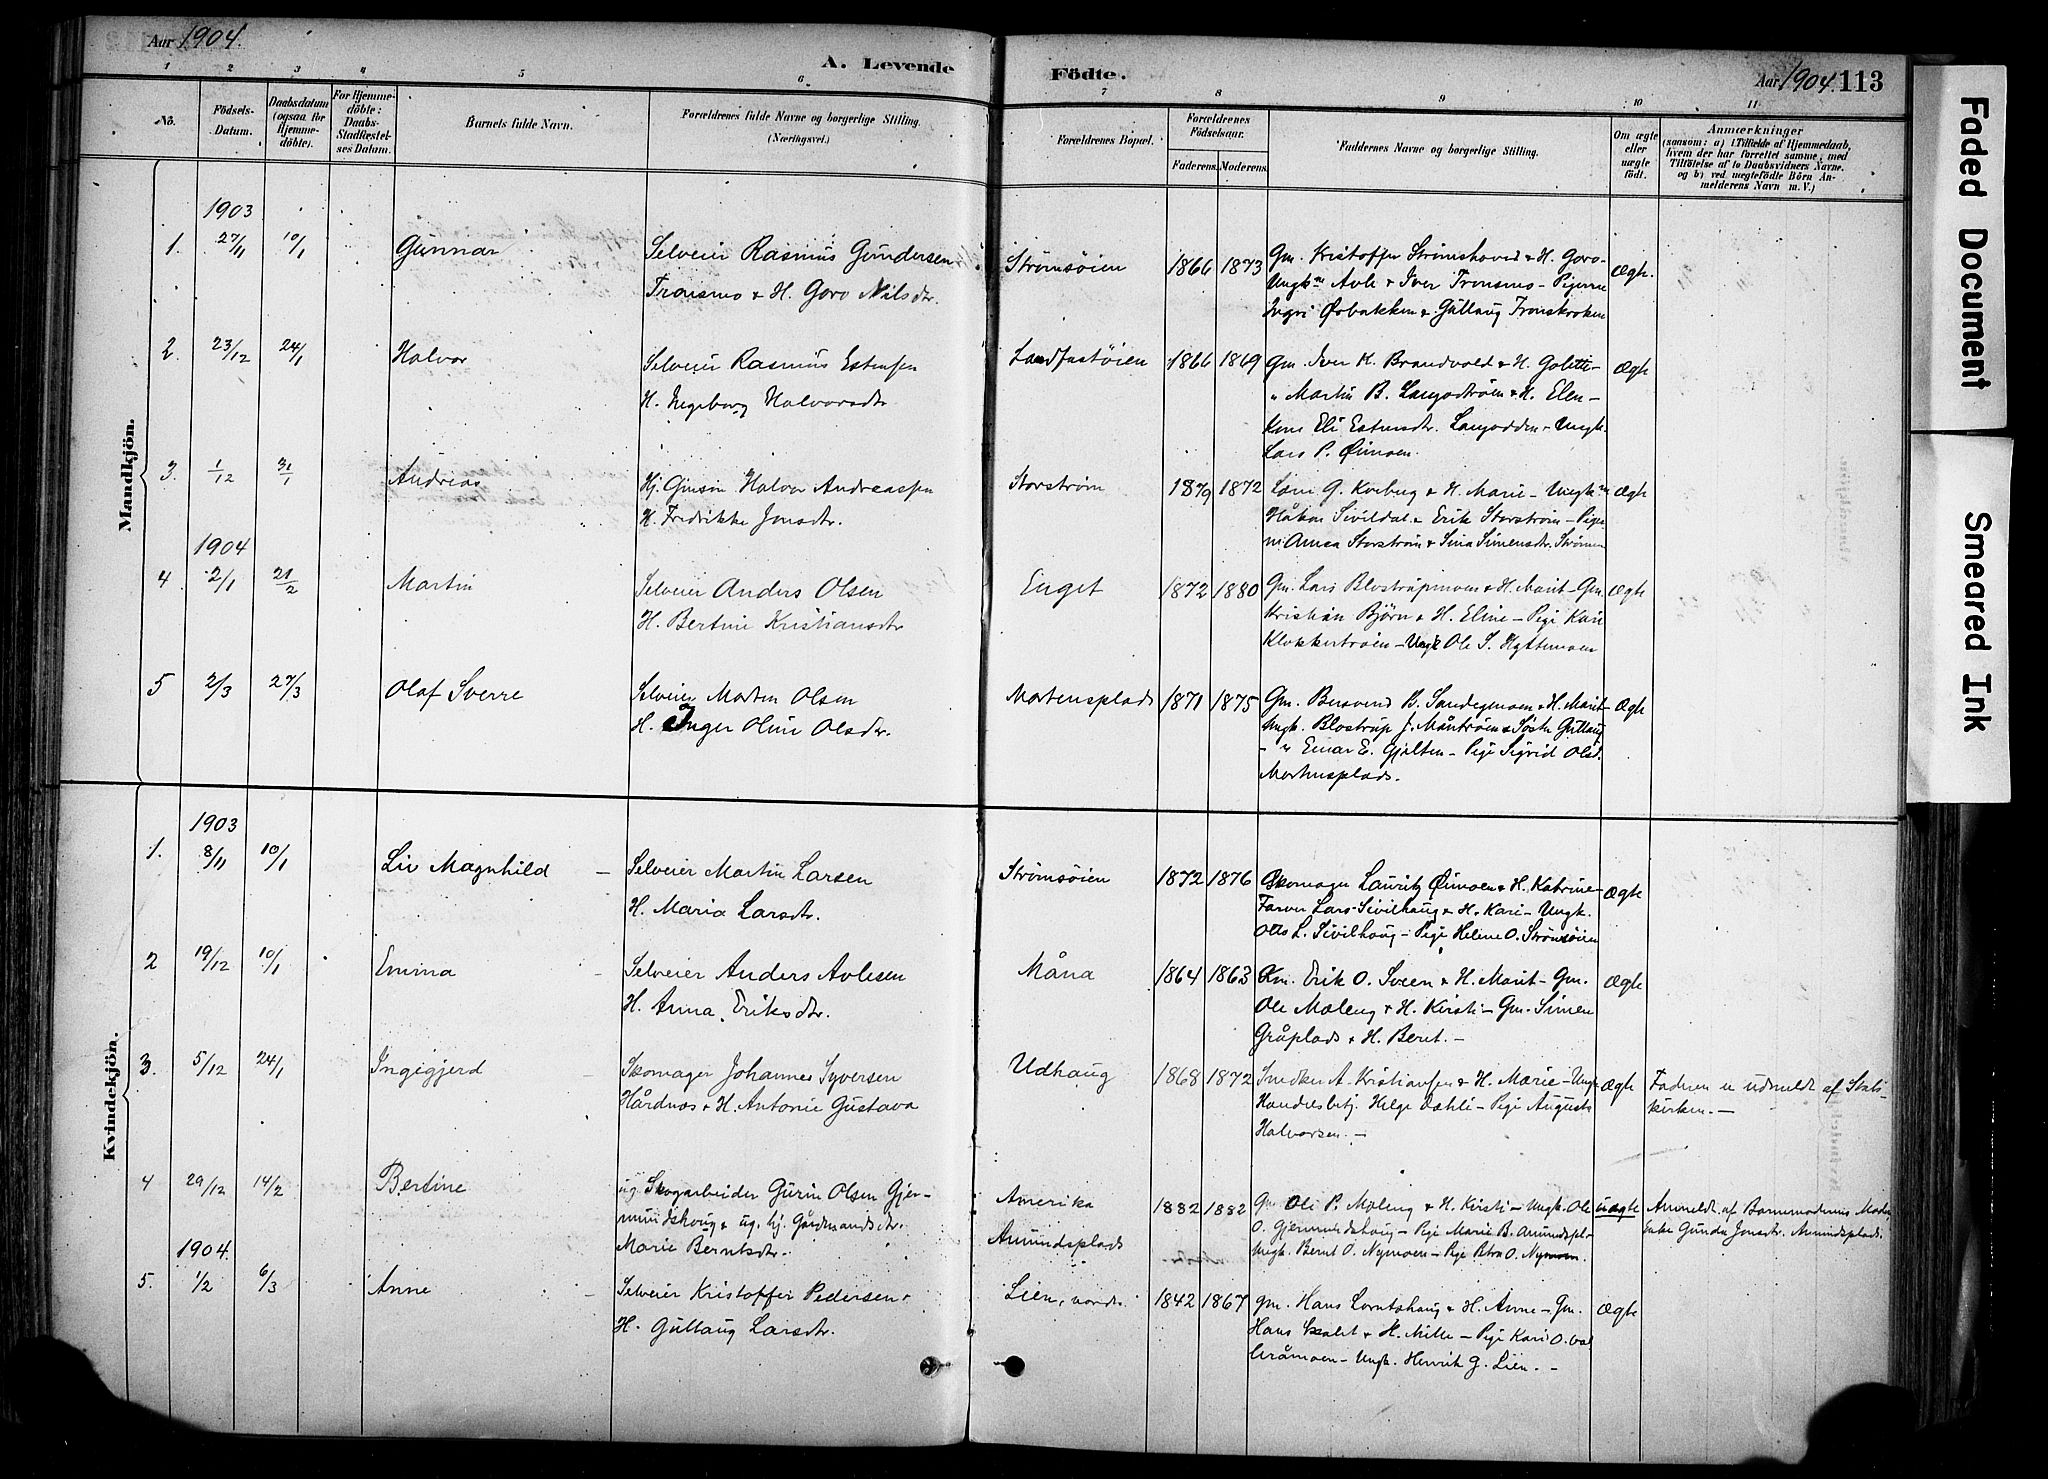 Aar 1904.
A. Levende
Födte.
Aar 1904. 113
1 2 3 4 5 6 7 8 9 10 11
No.
Födsels-
Datum.
Daabsdatum
(ogsaa for
Hjemme-
döbte).
For Hjemme-
döbte:
Daabs-
Stadfæstel-
ses Datum.
Barnets fulde Navn.
Forældrenes fulde Navne og borgerlige Stilling.
(Næringsvei.)
Forældrenes Bopæl.
Forældrenes
Födselsaar.
Faderens. Moderens.
Faddernes Navne og borgerlige Stilling.
Om ægte
eller
uægte
födt.
Anmærkninger
(saasom: a) i Tilfælde af Hjemmedaab,
hvem der har forrettet samme, med
Tilføielse af to Daabsvidners Navne.
og b) ved uægtefödte Börn An-
melderens Navn m. V.)
Mandkjön.
1903
1. 27/11 10/1 Gunnar
Selveier Rasmus Gundersen
Tronsmo & H. Goro Nilsdtr.
Strømsøien 1866 1873
Gm. Kristoffer Strømshoved & H. Goro-
Ungkm Avle & Iver Tronsmo - Pigerne
Ingri Øsbakken & Gullaug Tronskroken
Ægte.
2. 23/12 24/1 Halvor
Selveier Rasmus Estensen
H. Ingeborg Halvorsdtr
Landfastøien 1866 1869
Gm. Iver K. Brandvold & H. Goletti-
" Martin B. Langodtrøen & H. Elen-
Kone Eli Estensdtr. Langodden - Ungk.
Lars P. Øimoen.
Ægte
3. 1/12 31/1 Andreas
Halvor Andreassen
H. Fredrikke Jonsdtr.
Storstrøm 1879 1872
G. Korbug & H. Marie - Ungkm
Håkon Sivildal & Erik Storstrøm - Piger
Storstrøm & Sina Simensdtr. Strømen
Ægte
1904
4 2/1 21/2 Martin
Selveier Anders Olsen
H. Bertine Kristiansdtr
Enget 1872 1880
Gm. Lars Blostrupmoen & H. Marit - Gm.
Kristian Bjørn & H. Eline - Pige Kari
Klokkertrøen - Ungk Ole S. Hyttemoen
Ægte
5 2/3 27/3 Olaf Sverre
Selveier Morten Olsen
H. Inger Oline Olsdtr.
Mortensplads 1871 1875
Gm. Bersvend B. Sandegmoen & H. Marit-
Ungk. Blostrup J. Måntrøen & Søster Gullaug
- " Einar E. Gjelten - Pige Sigrid Olsd.
Mortensplads.
Ægte
Kvindekjön.
1903
1. 8/11 10/1 Liv Magnhild
Selveier Martin Larsen
H. Maria Larsdtr.
Strømsøien 1872 1876
Skomager Lauritz Øimoen & H. Katrine-
Farver Lars Sivilhaug & H. Kari - Ungk.
Otto L. Sivilhaug - Pige Helene O. Strømsøien
Ægte
2 19/12 10/1 Emma
Selveier Anders Avlesen
H. Anna Eriksdtr.
Måna 1864 1863
Km. Erik O. Sveen & H. Marit - Gm.
Ole Mæleng & H. Kirsti - Gm. Simen
Gråplads & H. Beret. -
Ægte
3. 5/12 24/1 Ingigjerd
Skomager Johannes Syversen
Hårdnes & H. Antonie Gustava
Udhaug 1868 1872
Snedker A. Kristiansen & H. Marie - Ungk
Handelsbetj. Helge Dæhli - Pige Augusta
Halvorsen. -
Ægte
Faderen er udmeldt af Stats-
kirken. -
4 29/12 14/2 Bertine
ug. Skogarbeider Gurin Olsen Gjer-
mundshoug & ug. hj. Gårdmandsdtr.
Marie Berntsdtr.
Amerika
Amundsplads 1882 1882
Gm. Ole P. Mæleng & H. Kirsti - Ungk. Ole
O. Gjermundshaug - Pige Marie B. Amundspl.-
Ungk. Bernt O. Nymoen - Pige Petra O. Nymoen.
uægte
Anmeldt af Barnemoderens Moder
Enke Gunda Jonsdtr. Amundsplads.
1904.
5. 1/2 6/3 Anne
Selveier Kristoffer Pedersen
H. Gullaug Larsdtr.
Lien, nordr. 1842 1867
Gm. Hans Lorntshaug & H. Anne - Gm.
Hans & H. Mille - Pige Kari O.
- Ungk. Henrik G. Lien. -
Ægte
Faded Document
Smeared Ink